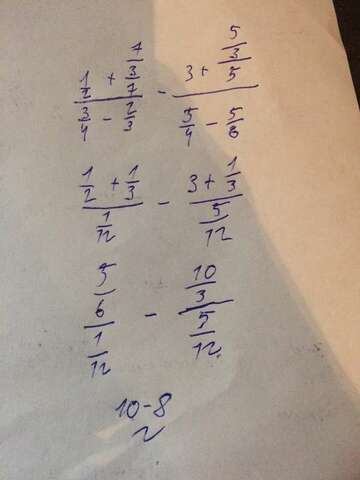 (1/2 + (7/3)/7)/(3/4 - 2/3) - (3 + (5/3)/5)/(5/4 - 5/6)
(1/2 + 1/3)/(1/12) - (3 + 1/3)/(5/12)
(5/6)/(1/12) - (10/3)/(5/12)
10-8
2